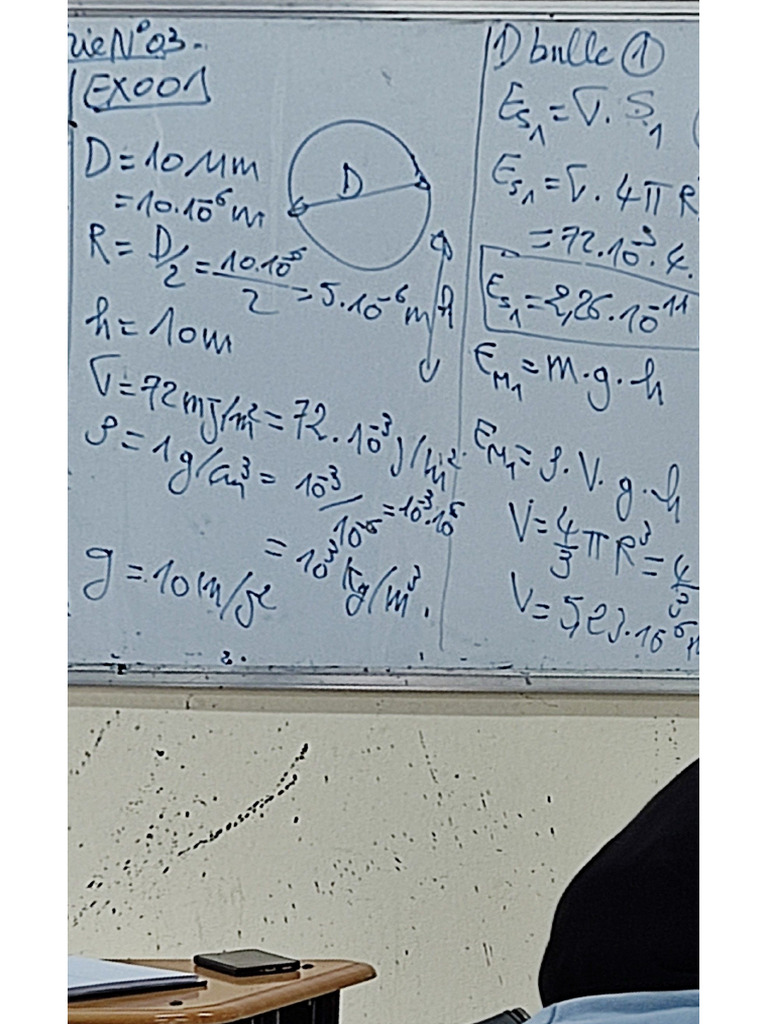 rie N° 03.
EX001
D = 10 µm
= 10.10⁻⁶ m
R = D/2 = 10.10⁻⁶/2 = 5.10⁻⁶ m
D
h
h = 10m
σ = 72 mJ/m² = 72.10⁻³ J/m².
ρ = 1 g/cm³ = 10⁻³/10⁻⁶ = 10⁻³.10⁶
= 10³ Kg/m³.
g = 10 m/s²
1) bulle ①
E_S₁ = σ. S₁
E_S₁ = σ. 4π R
= 72.10⁻³. 4.
E_S₁ = 2,26.10⁻¹¹
E_M₁ = m.g.h
E_M₁ = ρ.V.g.h
V = 4/3 π R³ = 4/3
V = 5,23.10